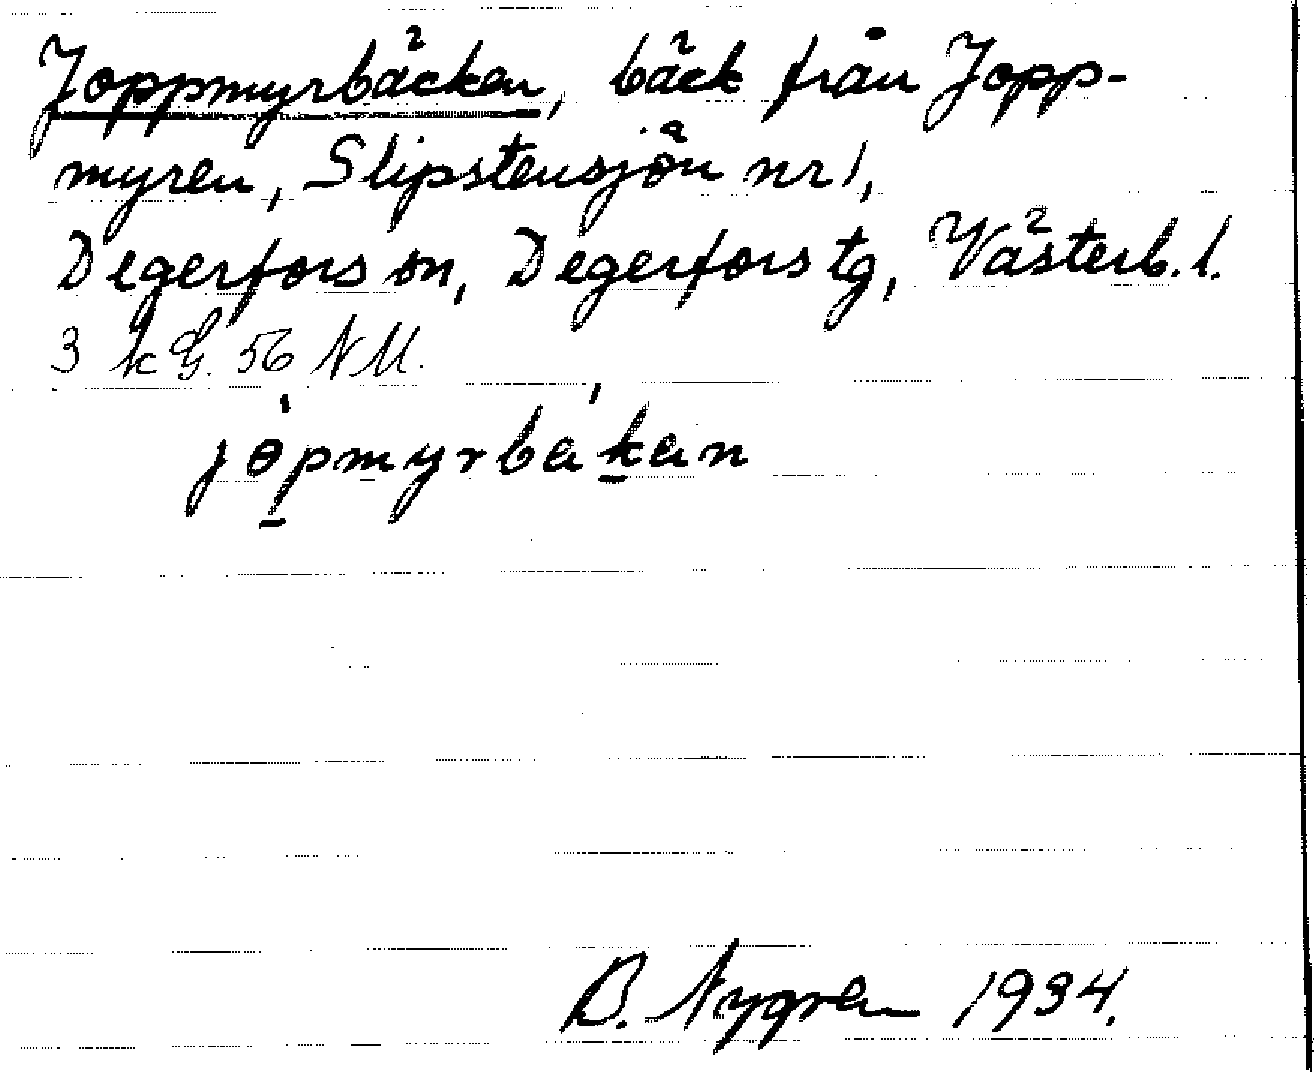 Joppmyrbäcken, bäck från Jopp-
myren, Slipstensjön nr 1,
Degerfors sn, Degerfors tg, Västerb. l.
3 k G. 56 NM.
jɵpmyrbakan
B. Nygren 1934.